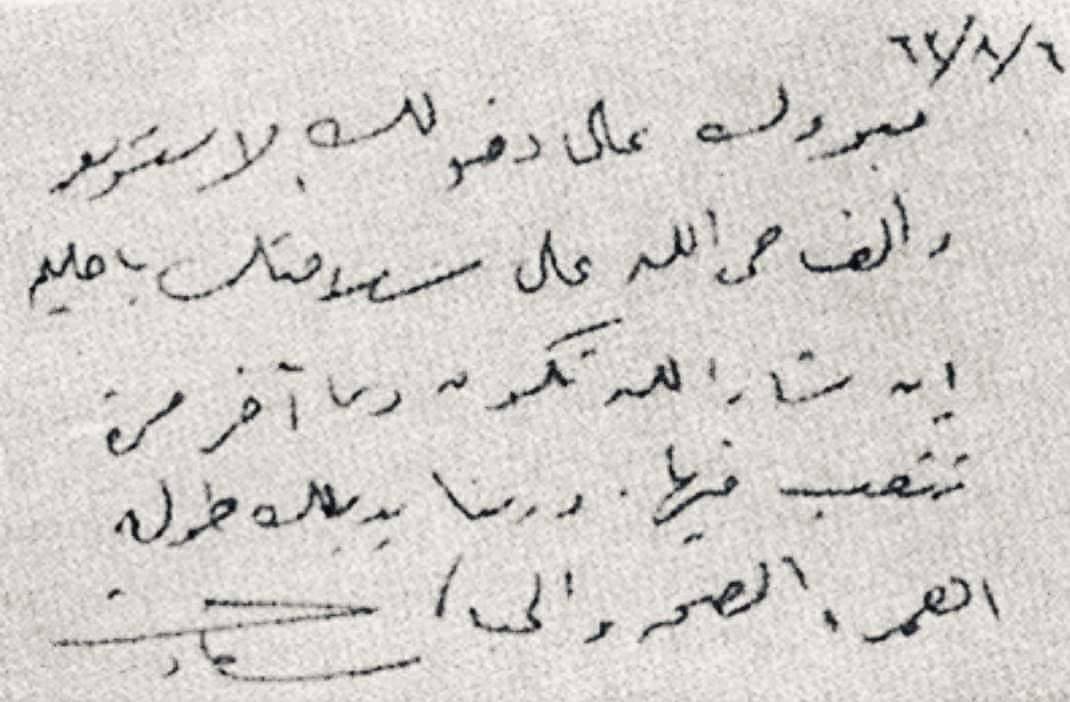 ٦/٨/٦٢
مبروك على دخولك بلاستوديو
والف حمدالله على سلامتك ياحليم
إن شاء الله تكون دى آخر مرة
تتعب فيها. وربنا يديلك طولة
العمر والصحه و
سعاد